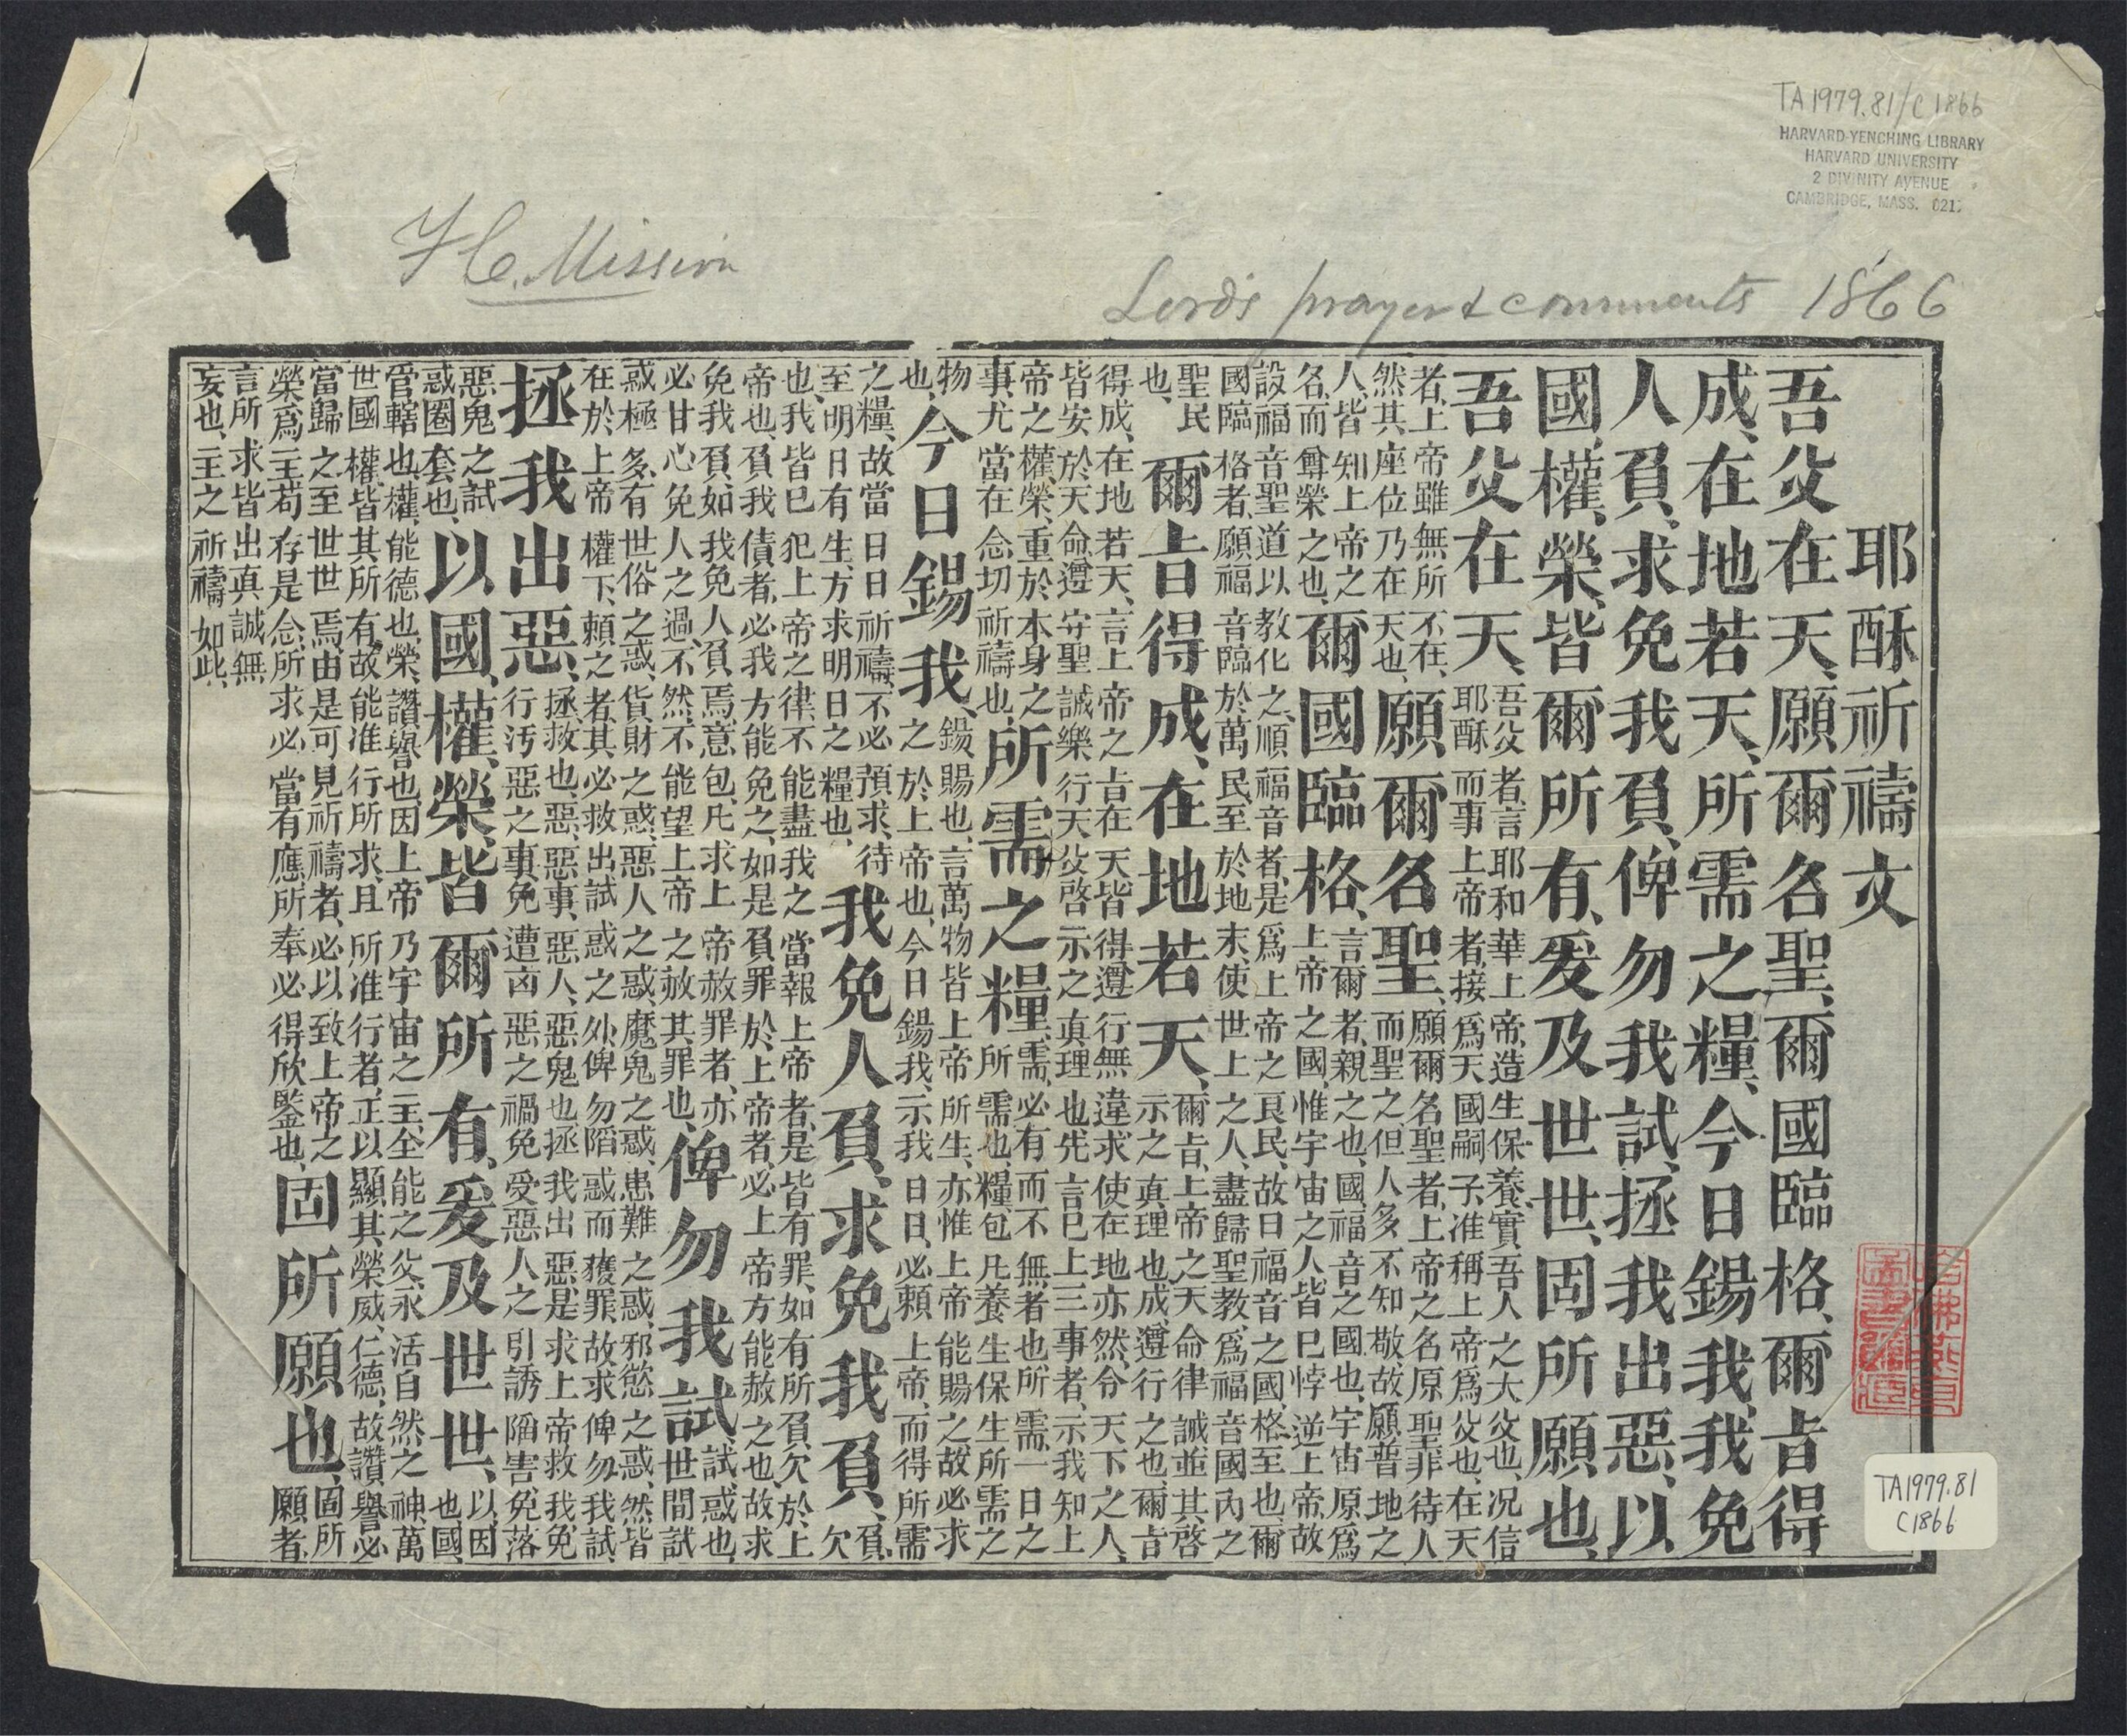 TA 1979.81/C1866
HARVARD-YENCHING LIBRARY
HARVARD UNIVERSITY
2 DIVINITY AVENUE
CAMBRIDGE, MASS. 0213
F. C. Mission
Lord's prayer & comments 1866
耶酥祈禱文
吾父在天、願爾名聖、爾國臨格、爾旨得
成、在地若天、所需之糧、今日錫我、我免
人負、求免我負、俾勿我試、拯我出惡、以
國、權、榮、皆爾所有、爰及世世、固所願也、
吾父在天、
吾父者、言耶和華上帝、造生保養、實吾人之大父也、况信
耶酥而事上帝者、接爲天國嗣子、准稱上帝爲父也、在天
者、上帝雖無所不在、
然其座位乃在天也、
願爾名聖、
願爾名聖者、上帝之名原聖、非待人
而聖之、但人多不知敬、故願普地之
人、皆知上帝之
名、而尊榮之也、
爾國臨格、
言爾者、親之也、國、福音之國也、宇宙原爲
上帝之國、惟宇宙之人、皆已悖逆上帝、故
設福音聖道、以教化之、順福音者、是爲上帝之艮民、故曰福音之國、格、至也、爾
國臨格者、願福音臨於萬民、至於地末、使世上之人、盡歸聖教、爲福音國內之
聖民
也、
爾旨得成、在地若天、
爾旨、上帝之天命律誡、並其啓
示之真理也、成、遵行之也、爾旨
得成、在地若天、言上帝之旨、在天皆得遵行無違、求使在地亦然、令天下之人、
皆安於天命、遵守聖誡、樂行天父啓示之真理也、先言已上三事者、示我知上
帝之權榮、重於本身之
事、尤當在念切祈禱也、
所需之糧、
需、必有而不無者也、所需、一日之
所需也、糧、包凡養生保生所需之
物
也、
今日錫我、
錫、賜也、言萬物皆上帝所生、亦惟上帝能賜之、故必求
之於上帝也、今日錫我、示我日日必賴上帝、而得所需
之糧、故當日日祈禱、不必預求、待
至明日有生、方求明日之糧也、
我免人負、求免我負、
負、
欠
也、我皆已犯上帝之律、不能盡我之當報上帝者、是皆有罪、如有所負欠於上
帝也、負我債者、必我方能免之、如是負罪於上帝者、必上帝方能赦之也、故求
免我負、如我免人負焉、意包凡求上帝赦罪者、亦
必甘心免人之過、不然、不能望上帝之赦其罪也、
俾勿我試、
試、惑也、
世間試
惑極多、有世俗之惑、貨財之惑、惡人之惑、魔鬼之惑、患難之惑、邪慾之惑、然皆
在於上帝權下、頼之者、其必救出試惑之外、俾勿陷惑而獲罪、故求俾勿我試、
拯我出惡、
拯、救也、惡、惡事、惡人、惡鬼也、拯我出惡、是求上帝救我免
行污惡之事、免遭凶惡之禍、免受惡人之引誘陷害、免落
惡鬼之試
惑圈套也、
以國、權、榮、皆爾所有、爰及世世、
以、因
也、國、
管轄也、權、能德也、榮、讚譽也、因上帝乃宇宙之主、全能之父、永活自然之神、萬
世國權皆其所有、故能准行所求、且所准行者、正以顯其榮威、仁德、故讚譽必
當歸之至世世焉、由是可見祈禱者、必以致上帝之
榮爲主、苟存是念、所求必當有應、所奉必得欣鑒也、
固所願也、
固所
願者、
言所求皆出真誠無
妄也、主之祈禱如此、
哈佛燕京
圖書館藏
TA1979.81
C1866